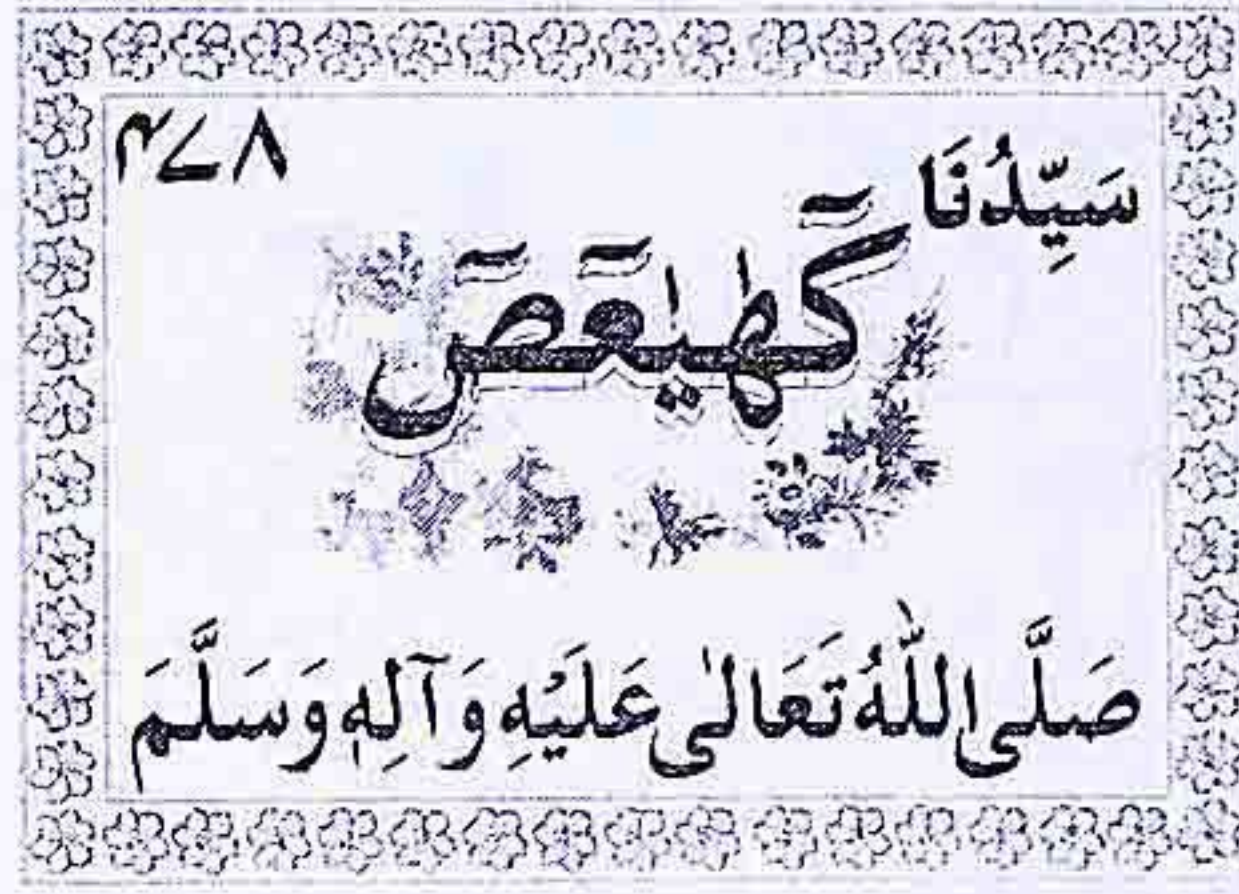 ۴۷۸
سَيِّدُنَا
كٓهٰيٰعٓصٓ
صَلَّى اللّٰهُ تَعَالٰى عَلَيْهِ وَآلِهٖ وَسَلَّمَ